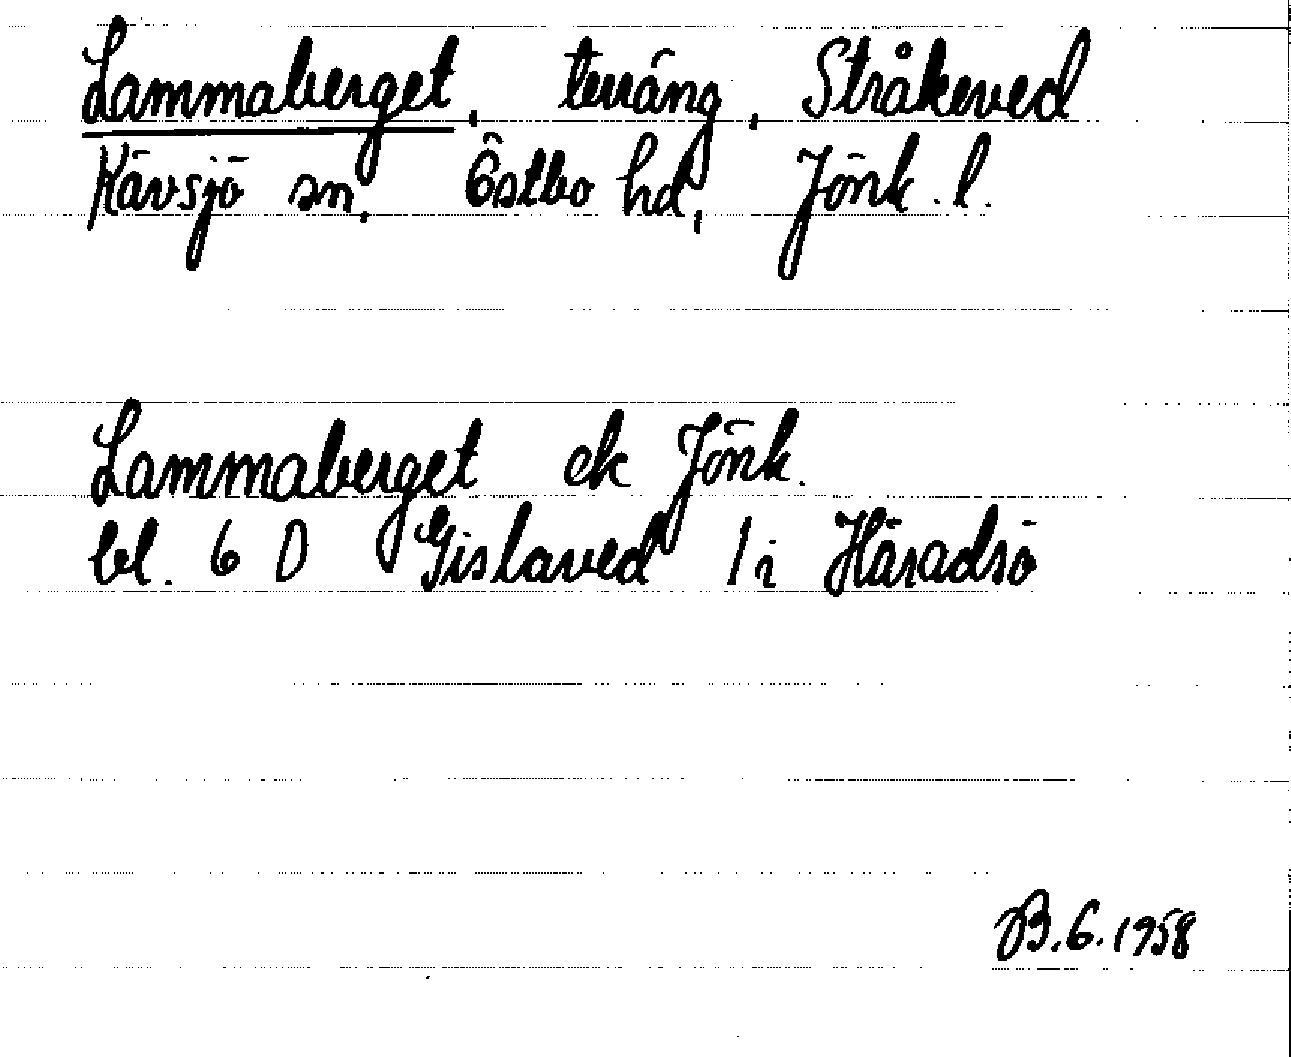 Lammaberget, terräng, Stråkeved
Kävsjö sn, Östbo hd, Jönk. l.
Lammaberget ek Jönk.
bl. 6 D Gislaved 1 i Häradsö
B.G. 1958